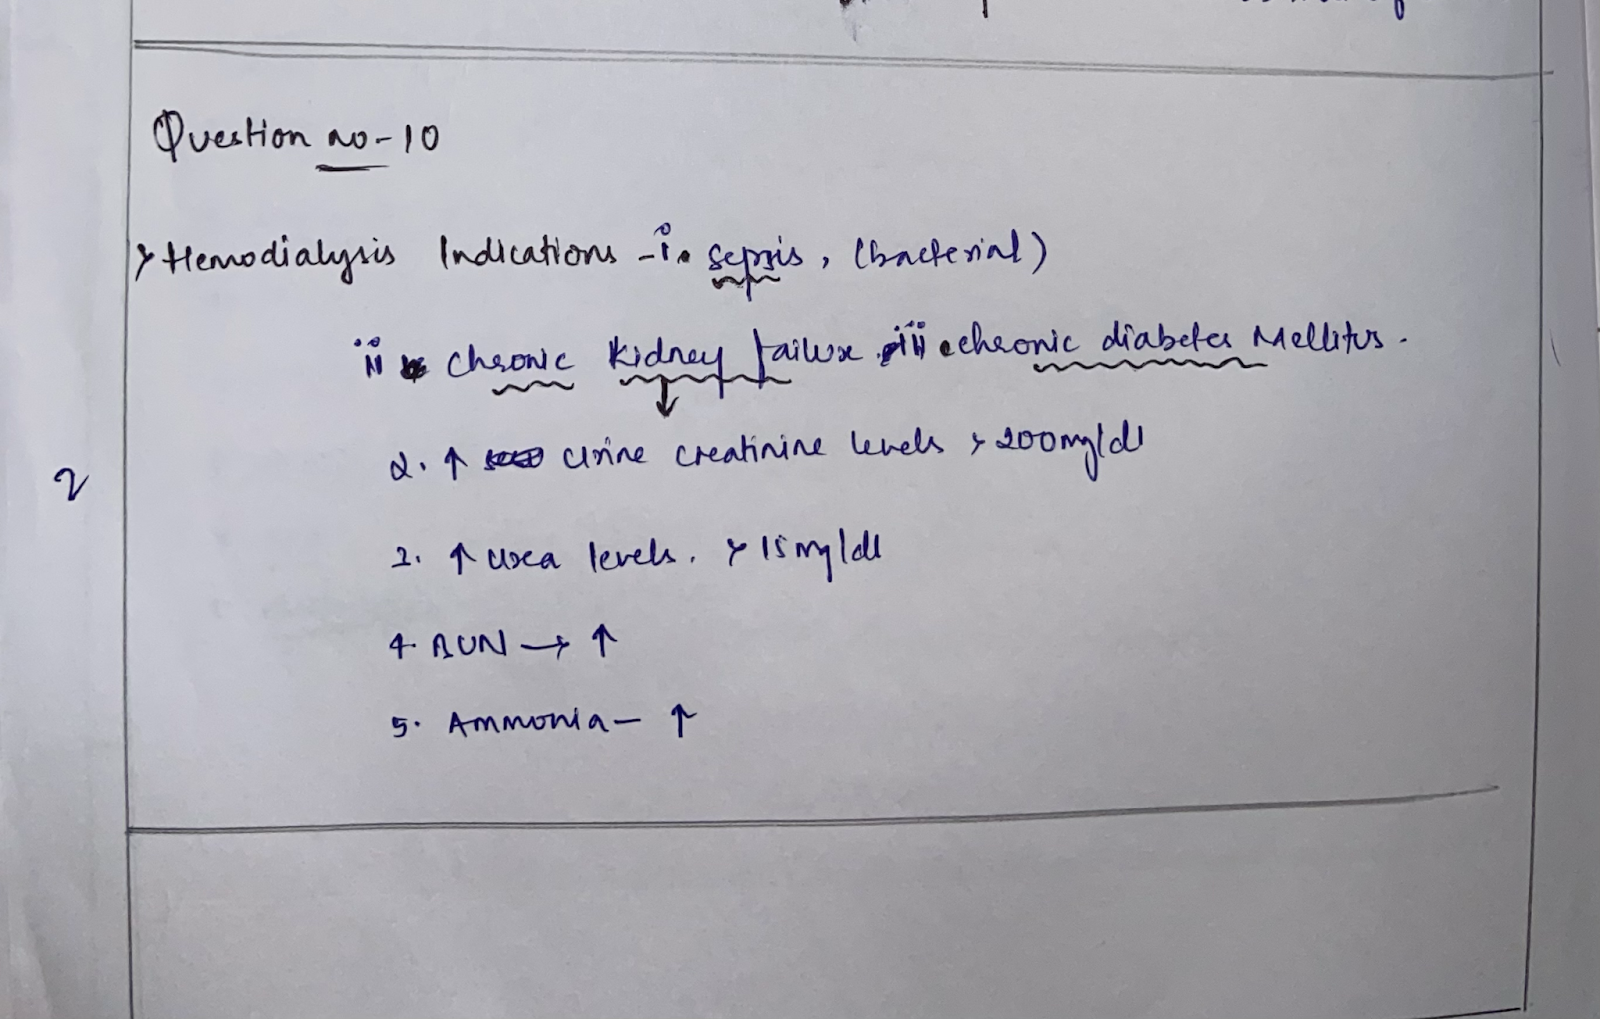 Question no-10
> Hemodialysis Indications - i. sepsis, (bacterial)
ii chronic kidney failure iii chronic diabetes Mellitus.
↓
2. ↑ urine creatinine levels > 200mg/dl
2
3. ↑ urea levels. > 15mg/dl
4. BUN → ↑
5. Ammonia - ↑